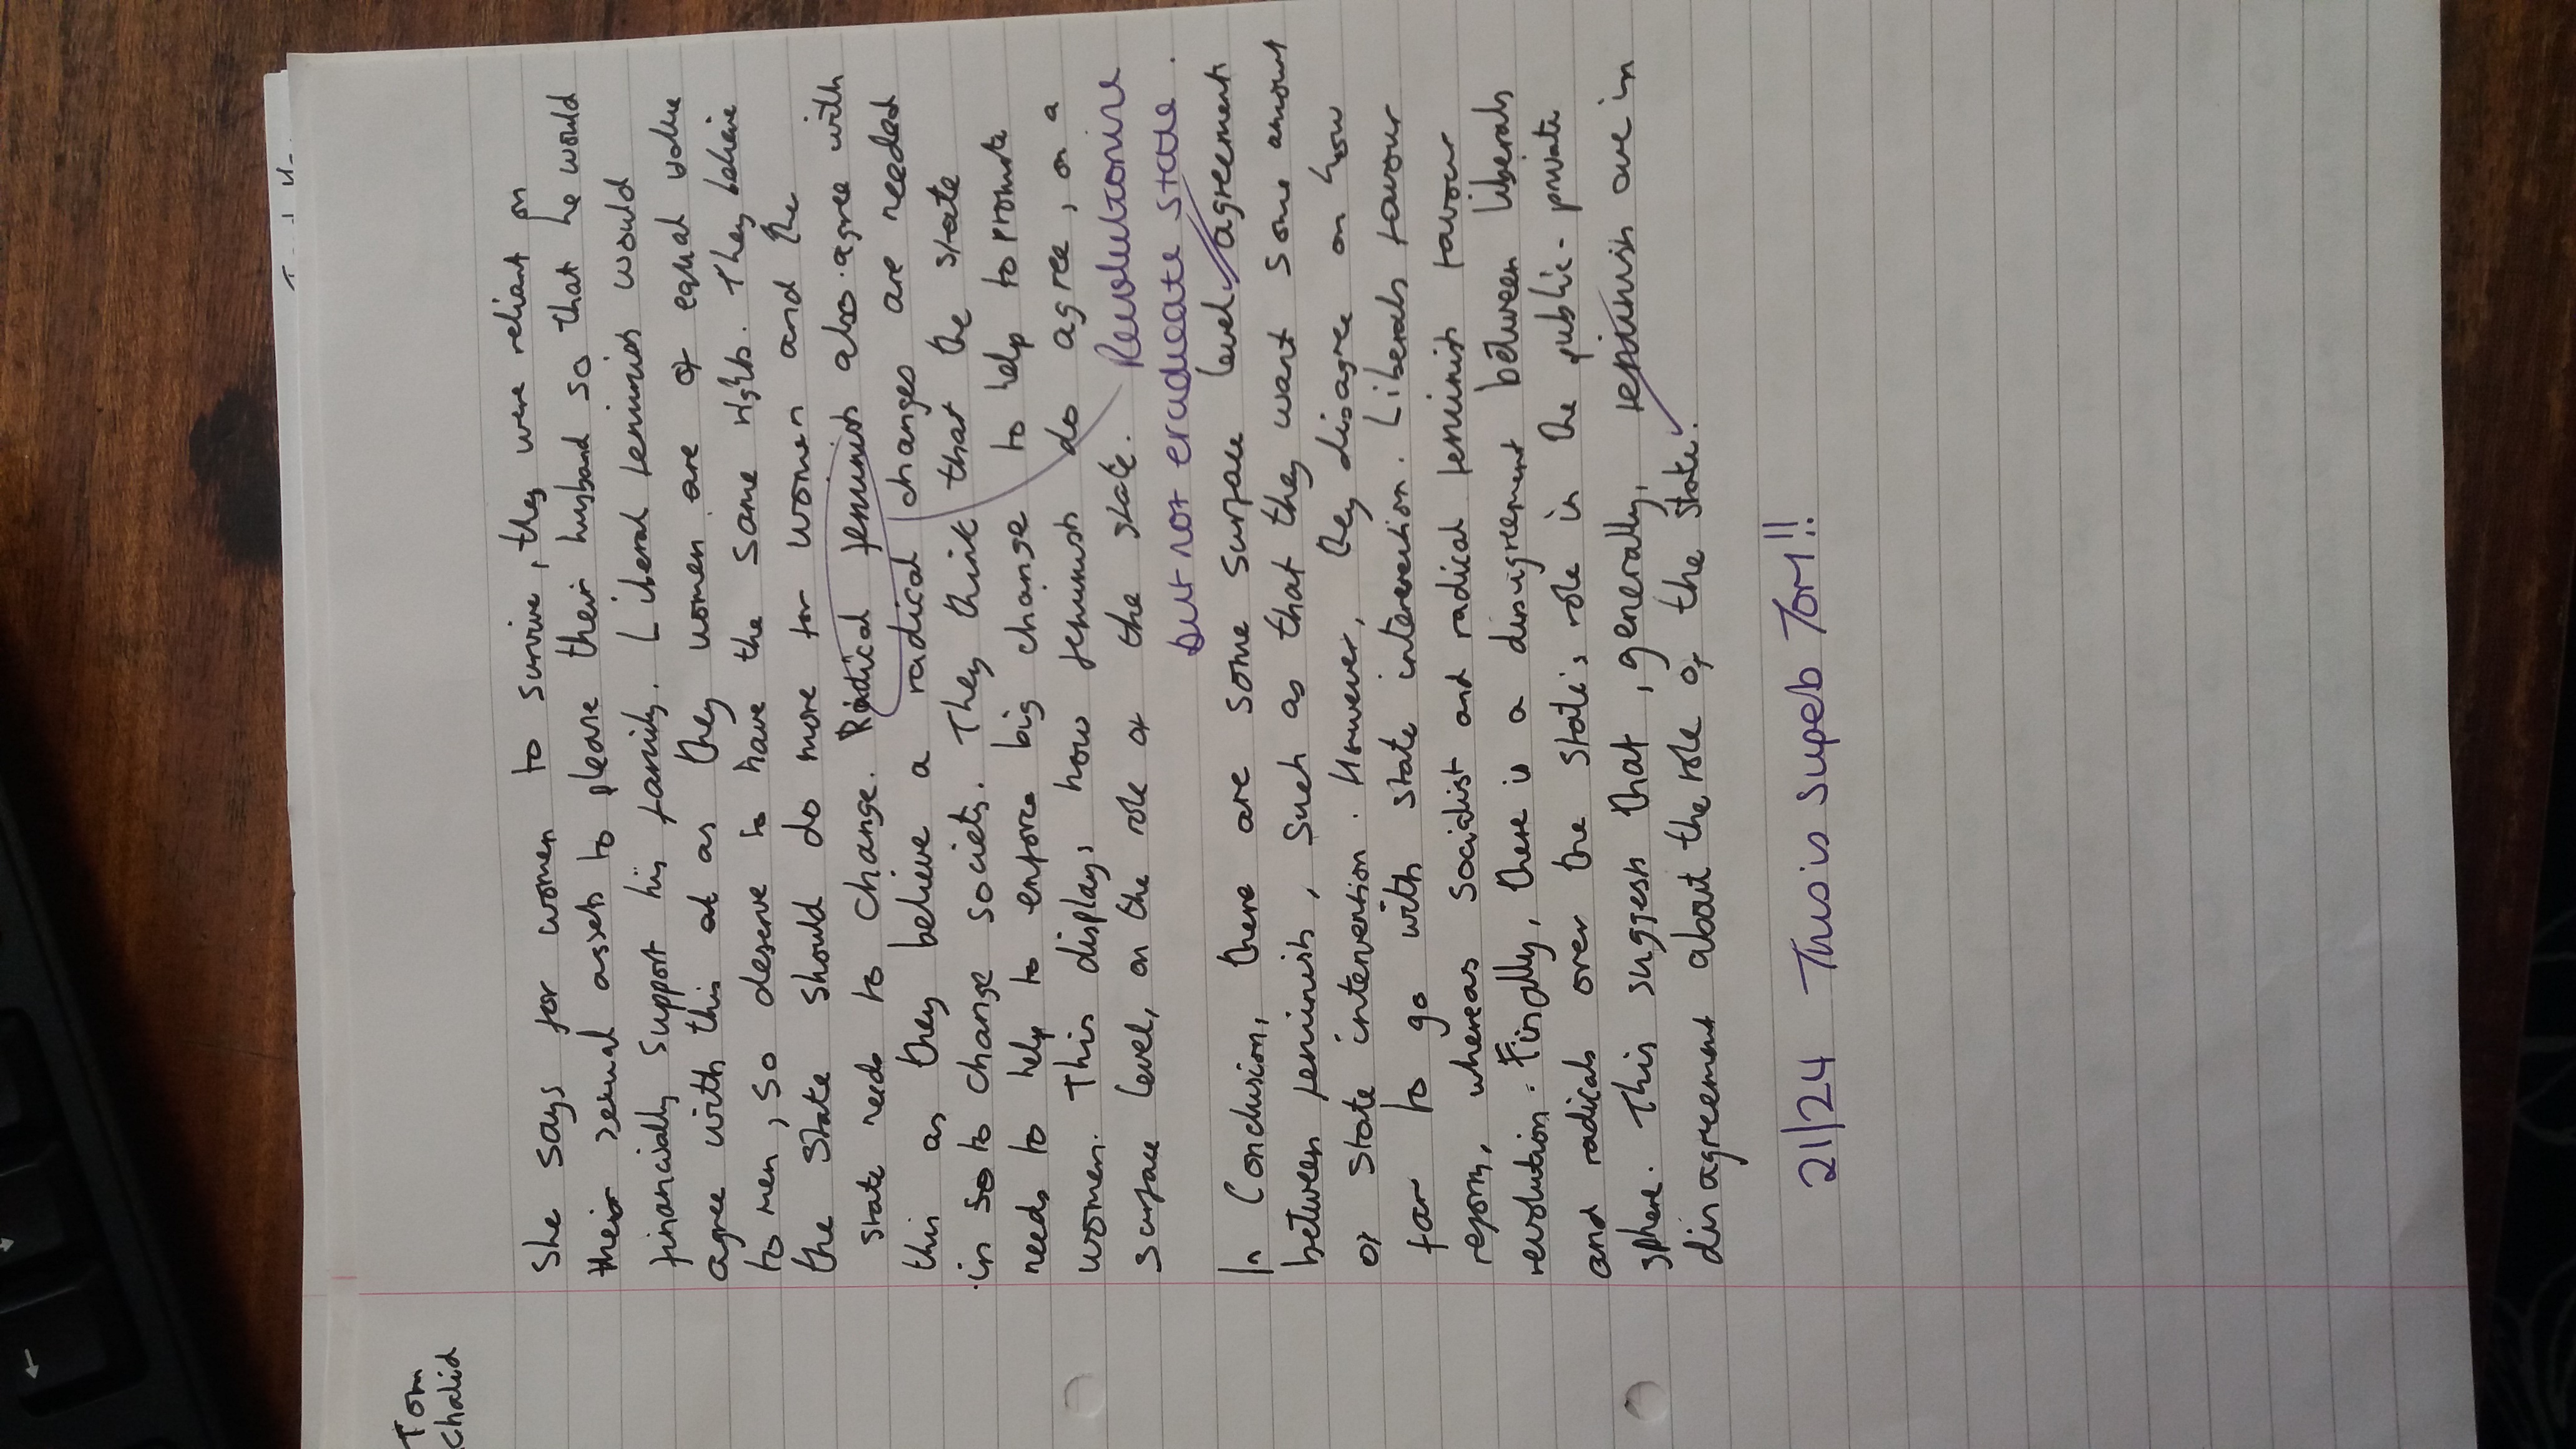 Tom
Chalid
She says for women to survive, they were reliant on
their sexual assets to please their husband so that he would
financially support his family. Liberal feminists would
agree with this as they women are of equal value
to men, so deserve to have the same rights. They believe
the state should do more for women and the
state needs to change. Radical feminists also agree with
this as they believe a radical changes are needed
in so to change society. They think that the state
needs to help to enforce big change to help to promote
women. This displays how feminists do agree, on a
surface level, on the role of the state.
Revolutionise
but not eradicate state.
In Conclusion, there are some surface level agreements
between feminists, such as that they want some amount
of state intervention. However, they disagree on how
far to go with state intervention. Liberals favour
reform, whereas socialist and radical feminists favour
revolution. Finally, there is a disagreement between liberals
and radicals over the state's role in the public-private
sphere. This suggests that, generally, feminists are in
disagreement about the role of the state.
21/24 This is superb Tom!!